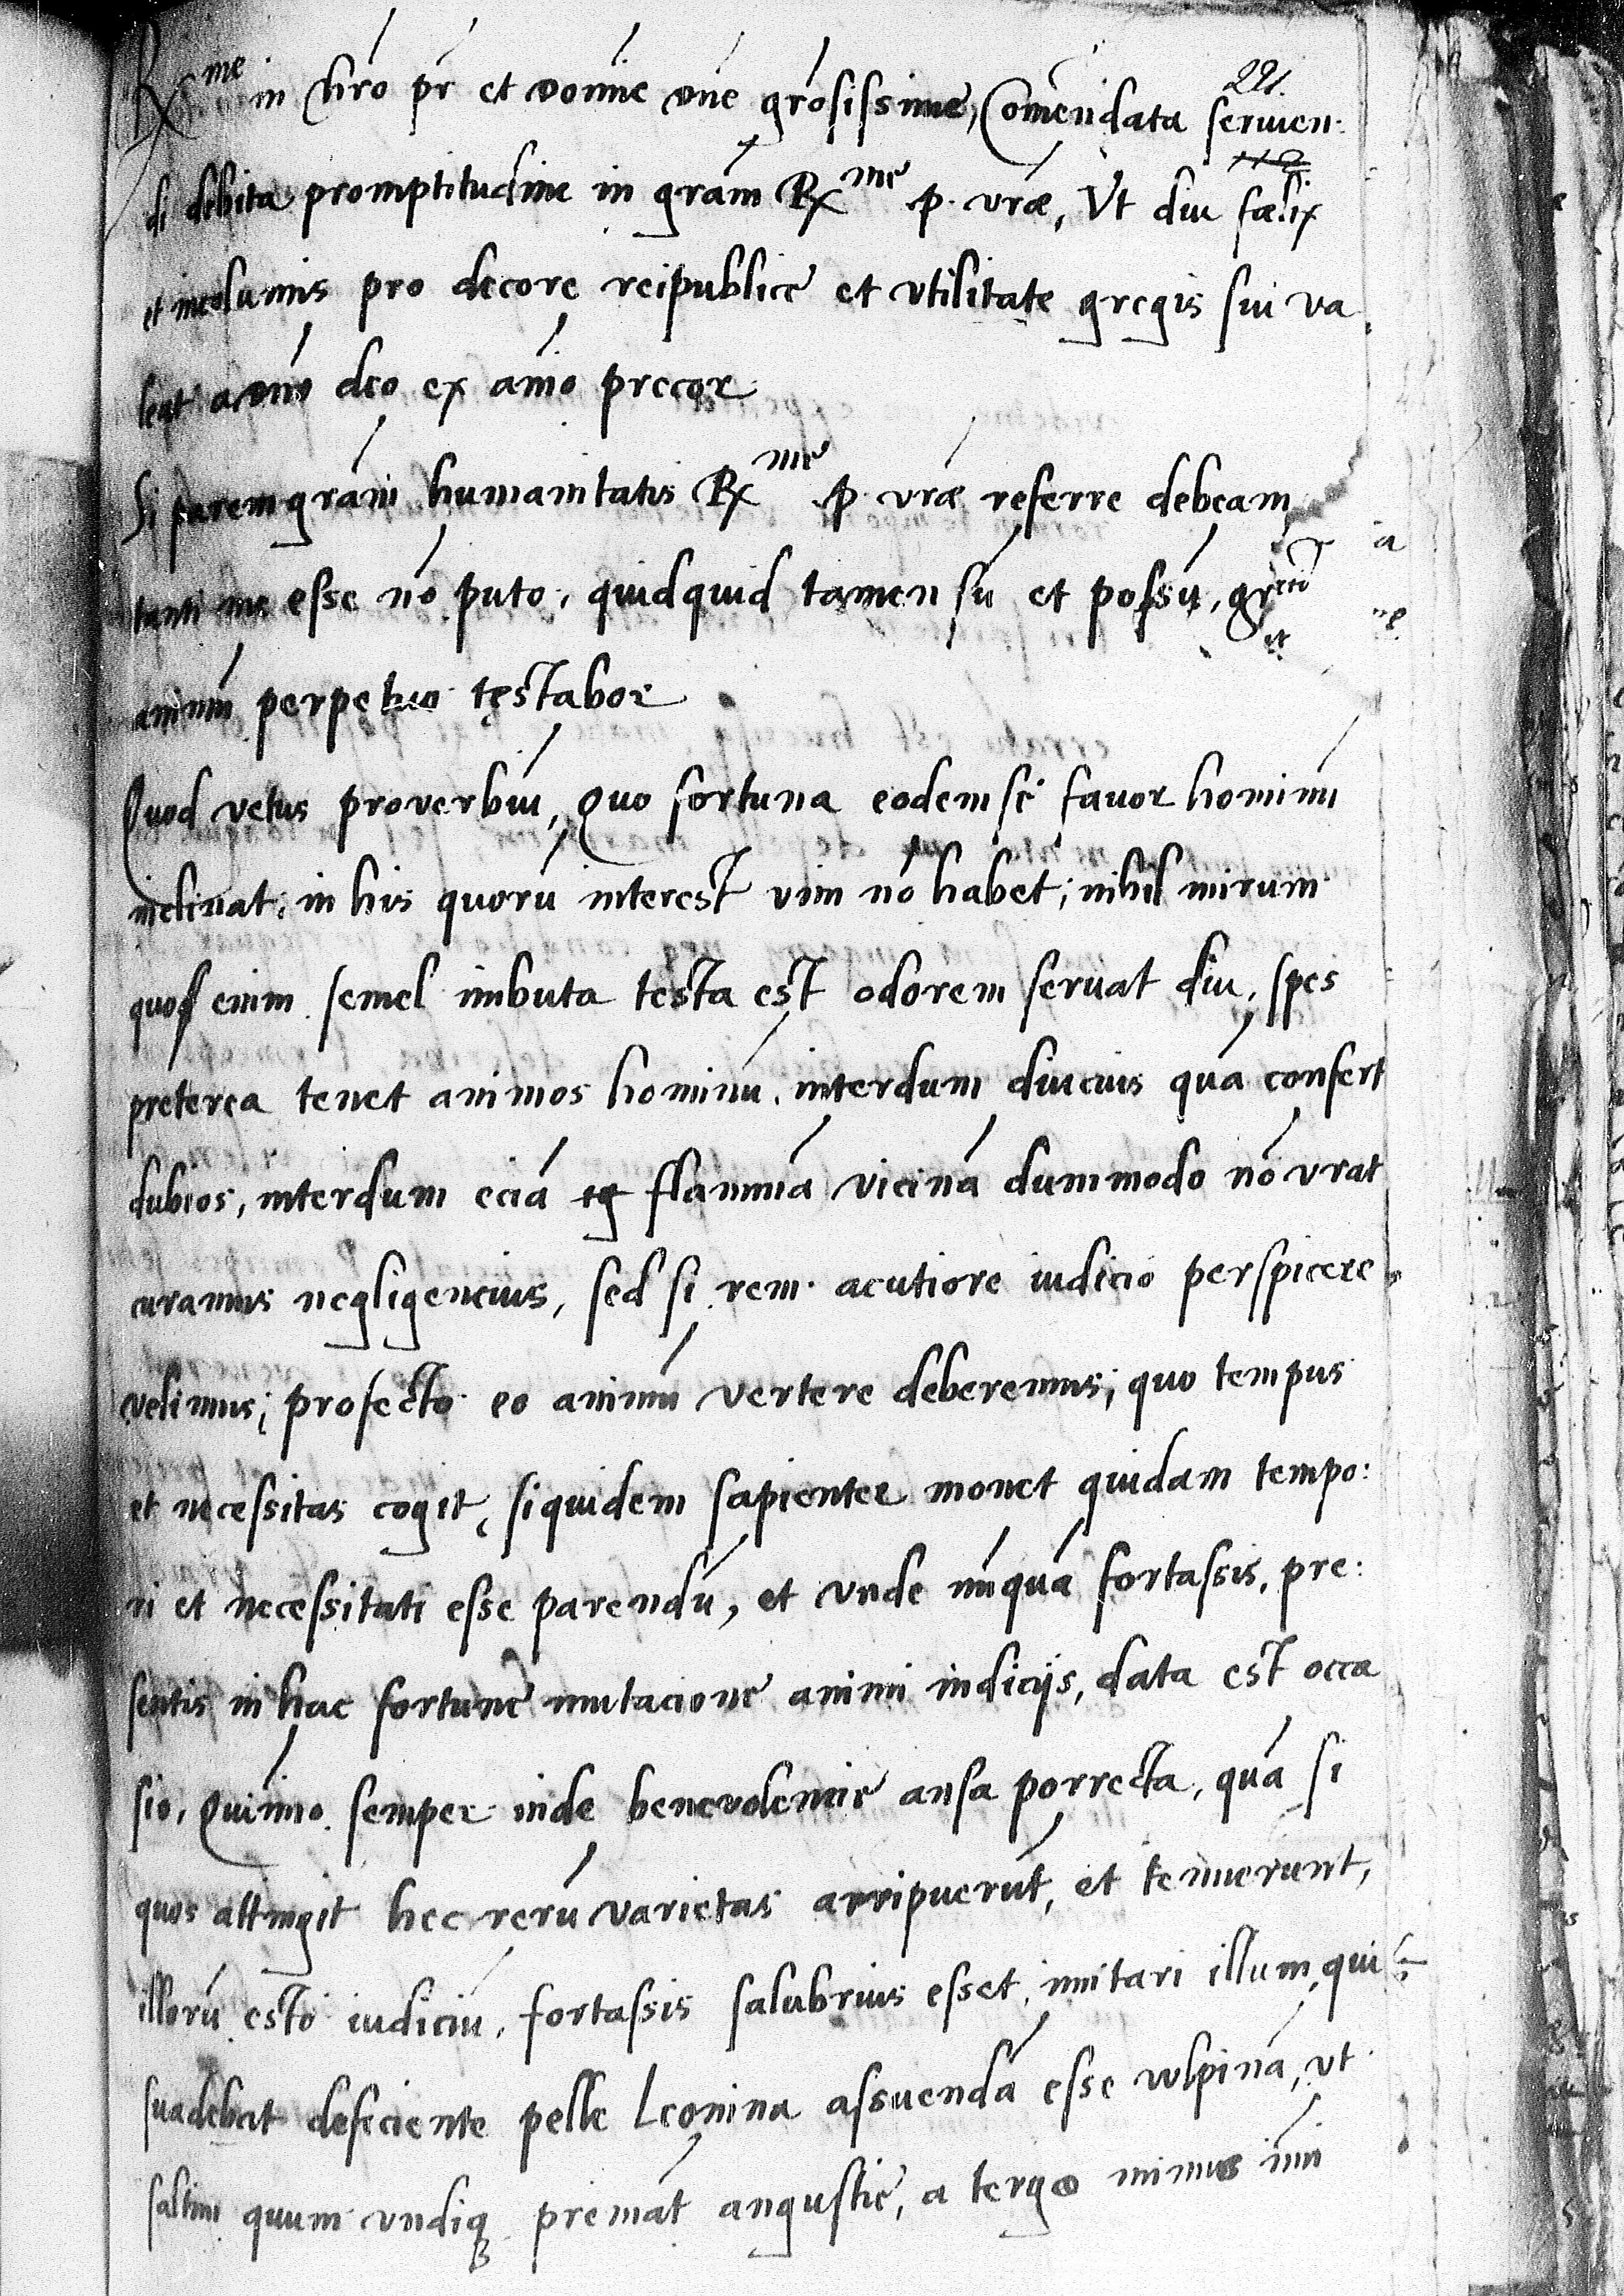 221.
Rx me in chro pr et domine dne grosissime, Comendata servien:
112
di debita promptitudine in gram Rx me p. vræ, Vt diu fælix
et incolumis pro decore reipublice et vtilitate gregis sui va
leat a dno deo ex aio precor
Si parem gram humanitatis Rx me p. vræ referre debeam,
tanti me esse no puto, quidquid tamen su et possu,
animu perpetuo testabor
Quod vetus proverbiu, Quo fortuna eodem se favor hominu
inclinat, in his quoru interest vim no habet; nihil mirum
quod enim semel imbuta testa est odorem seruat diu, spes
preterea tenet animos hominu, interdum diucius qua confert
dubios, interdum ecia flamma vicina dummodo no vrat
curamus negligencius, sed si rem acutiore iudicio perspicere
velimus; profecto eo animu vertere deberemus; quo tempus
et necessitas cogit, siquidem sapienter monet quidam tempo:
ri et necessitati esse parendu, et vnde nunqua fortassis, pre:
sentis in hac fortune mutacione animi indicijs, data est occa
sio, Quinimo semper inde benevolencie ansa porrecta, qua si
quos attingit hec reru varietas arripuerut, et tenuerunt,
illoru esto iudiciu, fortassis salubrius esset, imitari illum, qui
suadebat deficiente pelle Leonina assuenda esse vulpina, vt
saltim quum vndiq premat angustie, a tergo minus